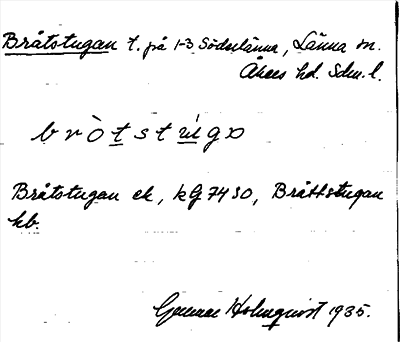 Bråtstugan t. på 1-3 Söderlänna, Länna sn.
Åkers hd. Sdm. l.
bròtstùgo
Bråtstugan ek, kg 74 SO, Bråttstugan
kb.
Gunnar Holmquist 1935.